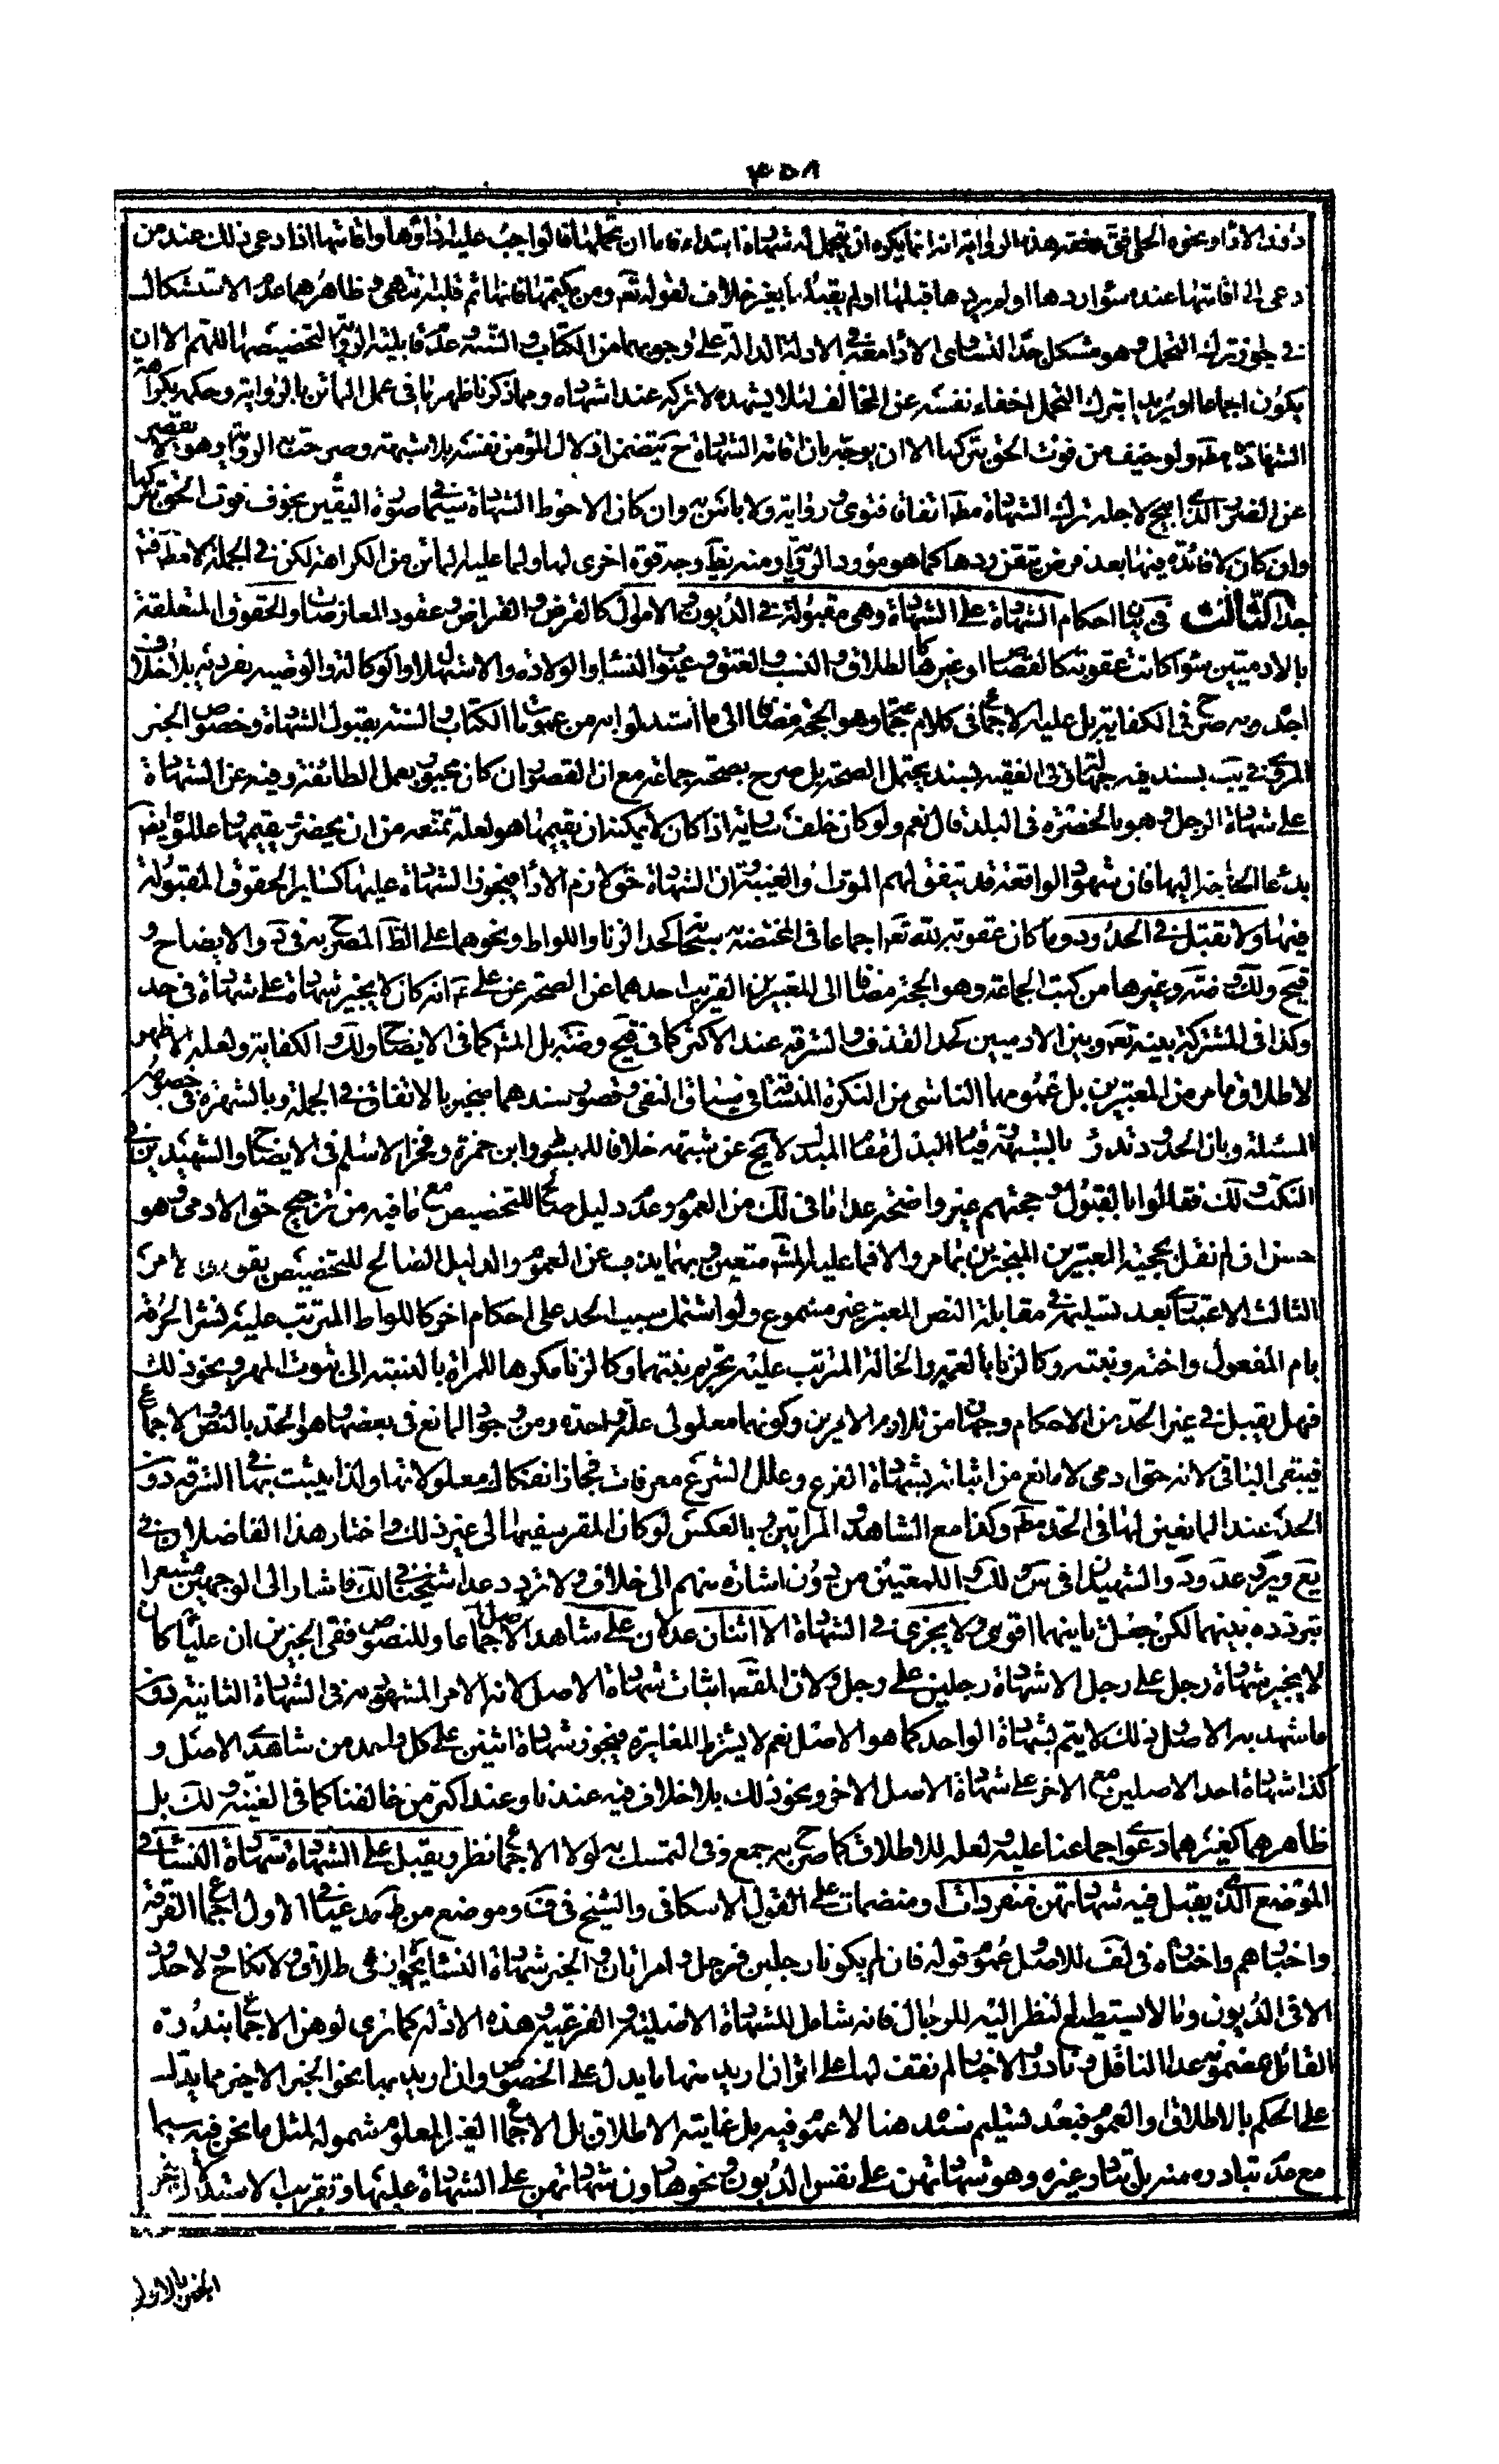 ٣٥٨
دون الاداء ونحوه الحلى في هذه الرواية انه انما يكره ان يتحمل له شهادة ابتداء فاما ان تحملها فالواجب عليه اداؤها واقامتها اذا دعى ذلك عند من
دعى الى اقامتها عنده سواء ردها او لم يردها قبلها او لم يقبلها بغير خلاف لقوله تعم ومن يكتمها فانه اثم قلبه انتهى وظاهرهما عدم الاستشكال
في جواز ترك التحمل وهو مشكل جدا لتساوى الاداء معه في الادلة الدالة على وجوبهما من الكتاب والسنة وعدم قابلية الرواية لتخصيصها اللهم الا ان
يكون اجماعا او يريد بترك التحمل اخفاء نفسه عن المخالف لئلا يشهده لا تركه عند اشهاده ومما ذكرنا ظهر ما في عمل الماتن بالرواية وحكمه بكراهة
الشهادة مطم ولو خيف من فوت الحق بتركها الا ان يوجه بان اقامة الشهادة ح يتضمن اذلال المؤمن نفسه بلا شبهة وصرحت به الرواية وهو لا يقصر
عن الضرر الذى ابيح لاجله ترك الشهادة مطم اتفاقا فتوى ورواية ولا باس به وان كان الاحوط الشهادة سيما في صورة اليقين بخوف فوت الحق بتركها
وان كان لا فائدة فيها بعد فرض تيقن ردها كما هو مورد الرواية ومنه يظهر وجه قوة اخرى لها ولما عليه الماتن من الكراهة لكن في الجملة لا مطم فتـ
جدا الثالث في بيان احكام الشهادة على الشهادة وهى مقبولة في الديون والاموال كالقرض والقراض وعقود المعاوضات والحقوق المتعلقة
بالادميين سواء كانت عقوبة كالقصاص او غيرها كالطلاق والنسب والعتق وعيوب النساء والولادة والاستهلال والوكالة والوصية بفرديه بلا خلاف
اجده وبه صرح في الكفاية بل عليه الاجماع في كلام جماعة وهو الحجة مضافا الى ما استدلوا به من عمومات الكتاب والسنة بقبول الشهادة وخصوص الخبر
المروى في يب بسند فيه جهالة وفي الفقيه بسند يحتمل الصحة بل صرح بصحته جماعة مع ان القصور ان كان مجبور بعمل الطائفة وفيه عن الشهادة
على شهادة الرجل وهو بالحضرة في البلد قال نعم ولو كان خلف سارية اذا كان لا يمكنه ان يقيمها هو لعلة تمنعه من ان يحضره ويقيمها
بدعاء الحاجة اليها فان شهود الواقعة قد يتفق لهم الموت والغيبة وان الشهادة حق لازم الاداء فيجوز الشهادة عليها كساير الحقوق المقبولة
فيها ولا تقبل في الحدود وما كان عقوبة لله تعم اجماعا في المختصة به سبحانه كحد الزنا واللواط ونحوهما على الظاهر المصرح به في والايضاح و
فيح ولك وضه وغيرها من كتب الجماعة وهو الحجة مضافا الى المعتبرين القريب احدهما من الصحة عن على ع انه كان لا يجيز شهادة على شهادة في حد
وكذا في المشتركة بينه تعم وبين الادميين كحد القذف والسرقة عند الاكثر كما في فيح وضه بل المشهور كما في الايضاح ولك والكفاية ولعله الاظهر
لاطلاق ما مر من المعتبرين بل عمومهما الناشى من النكرة المذكورة في سياق النفى وقصور سندهما منجبر بالاتفاق في الجملة وبالشهرة في خصوص
المسئلة وبان الحدود تدرؤ بالشبهة وقيام البدل مقام المبدل لا يخ عن شبهة خلافا للمبسوط وابن حمزة وفخر الاسلام في الايضاح والشهيدين في
النكت ولك فقالوا بالقبول وحجتهم غير واضحة عدا ما في لك من العموم وعدم دليل صالح للتخصيص مع ما فيه من ترجيح حق الادمى وهو
حسن ان لم نقل بحجية المعتبرين المنجبرين بما مر والا فما عليه المشهور متعين وبهما يذب عن العموم والدليل الصالح للتخصيص موجود
الثالث الاعتبار بعد تسليمه في مقابلة النص المعتبر غير مسموع ولو اشتمل سبب الحد على احكام اخر كاللواط المترتب عليه نشر الحرمة
بام المفعول واخته وبنته وكالزنا بالعمة والخالة المترتب عليه تحريم بنتهما وكالزنا مكرها للمراة بالنسبة الى ثبوت المهر ونحو ذلك
فهل يقبل في غير الحد من الاحكام وجهان من تلازم الامرين وكونهما معلولى علة واحدة ومن وجود المانع في بعضها وهو الحد بالنص والاجماع
فيبقى الباقى لانه حق ادمى لا مانع من اثباته بشهادة الفرع وعلل الشرع معرفات فجاز انفكاك معلولاتها ولذا يثبت بها السرقة دون
الحد عند المانعين لها في الحد مطم وكذا مع الشاهد والمراتين وبالعكس لو كان المقر سفيها الى غير ذلك واختار هذا الفاضلان في
يع وير وعد ود والشهيدان في س ولك واللمعتين من دون اشارة منهم الى خلاف ولا تردد عدا شيخنا في لك فاشار الى الوجهين مشعرا
بتردده بينهما لكن جعل ثانيهما اقوى ولا يجزى في الشهادة الا اثنان عدلان على شاهد الاصل اجماعا وللنصوص ففى الخبرين ان عليا كان
لا يجيز شهادة رجل على رجل الا شهادة رجلين على رجل ولان المقصود اثبات شهادة الاصل لانه الامر المشهود به في الشهادة الثانية دون
ما شهد به الاصل وذلك لا يتم بشهادة الواحد كما هو الاصل نعم لا يشترط المغايرة فيجوز شهادة اثنين على كل واحد من شاهدى الاصل و
كذا شهادة احد الاصلين مع الاخر على شهادة الاصل الاخر ونحو ذلك بلا خلاف فيه عندنا وعند اكثر من خالفنا كما في الغنية ولك بل
ظاهرهما كغيرهما دعوى اجماعنا عليه ولعله للاطلاق كما صرح به جمع وفي التمسك به لولا الاجماع نظر ويقبل على الشهادة شهادة النساء في
الموضع الذى يقبل فيه شهادتهن منفردات او منضمات على القول الاسكافى والشيخ في ف وموضع من ط مدعيا في الاول اجماع الفرقة
واخبارهم واختاره في لف للاصل وعموم قوله فان لم يكونا رجلين فرجل وامراتان والخبر شهادة النساء لا يجوز في طلاق ولا نكاح ولا حدود
الا في الديون وما لا يستطيع النظر اليه للرجال فانه شامل للشهادة الاصلية والفرعية وهذه الادلة كما ترى لوهن الاجماع بندرة
القائل بمضمونه عدا الناقل ونادر والاخبار لم نقف لها على اثر ان اريد منها ما يدل على الخصوص وان اريد بها نحو الخبر الاخير مما يدل
على الحكم بالاطلاق والعموم فبعد تسليم سنده هنا لا عموم فيه بل غايته الاطلاق بل الاجمال الغير المعلوم شموله لمثل ما نحن فيه سيما
مع عدم تبادره منه بل تبادر غيره وهو شهادتهن على نفس الديون ونحوها دون شهادتهن على الشهادة عليها وتقريب الاستدلال